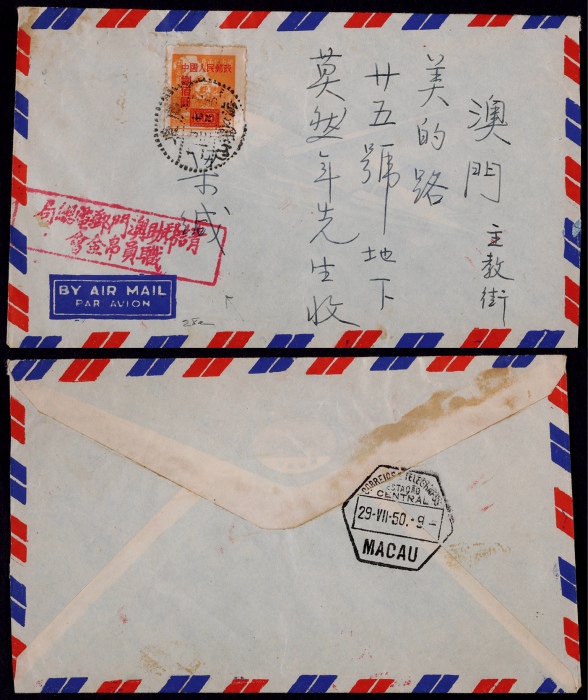 澳門 主教街
美的路
廿五號地下
莫㷫年先生收
中國人民郵政
請帮助澳門郵電總局
職員帛金會
BY AIR MAIL
PAR AVION
CORREIOS E TELEGRAFOS
ESTAÇÃO
CENTRAL
29-VII-50.-9-
MACAU